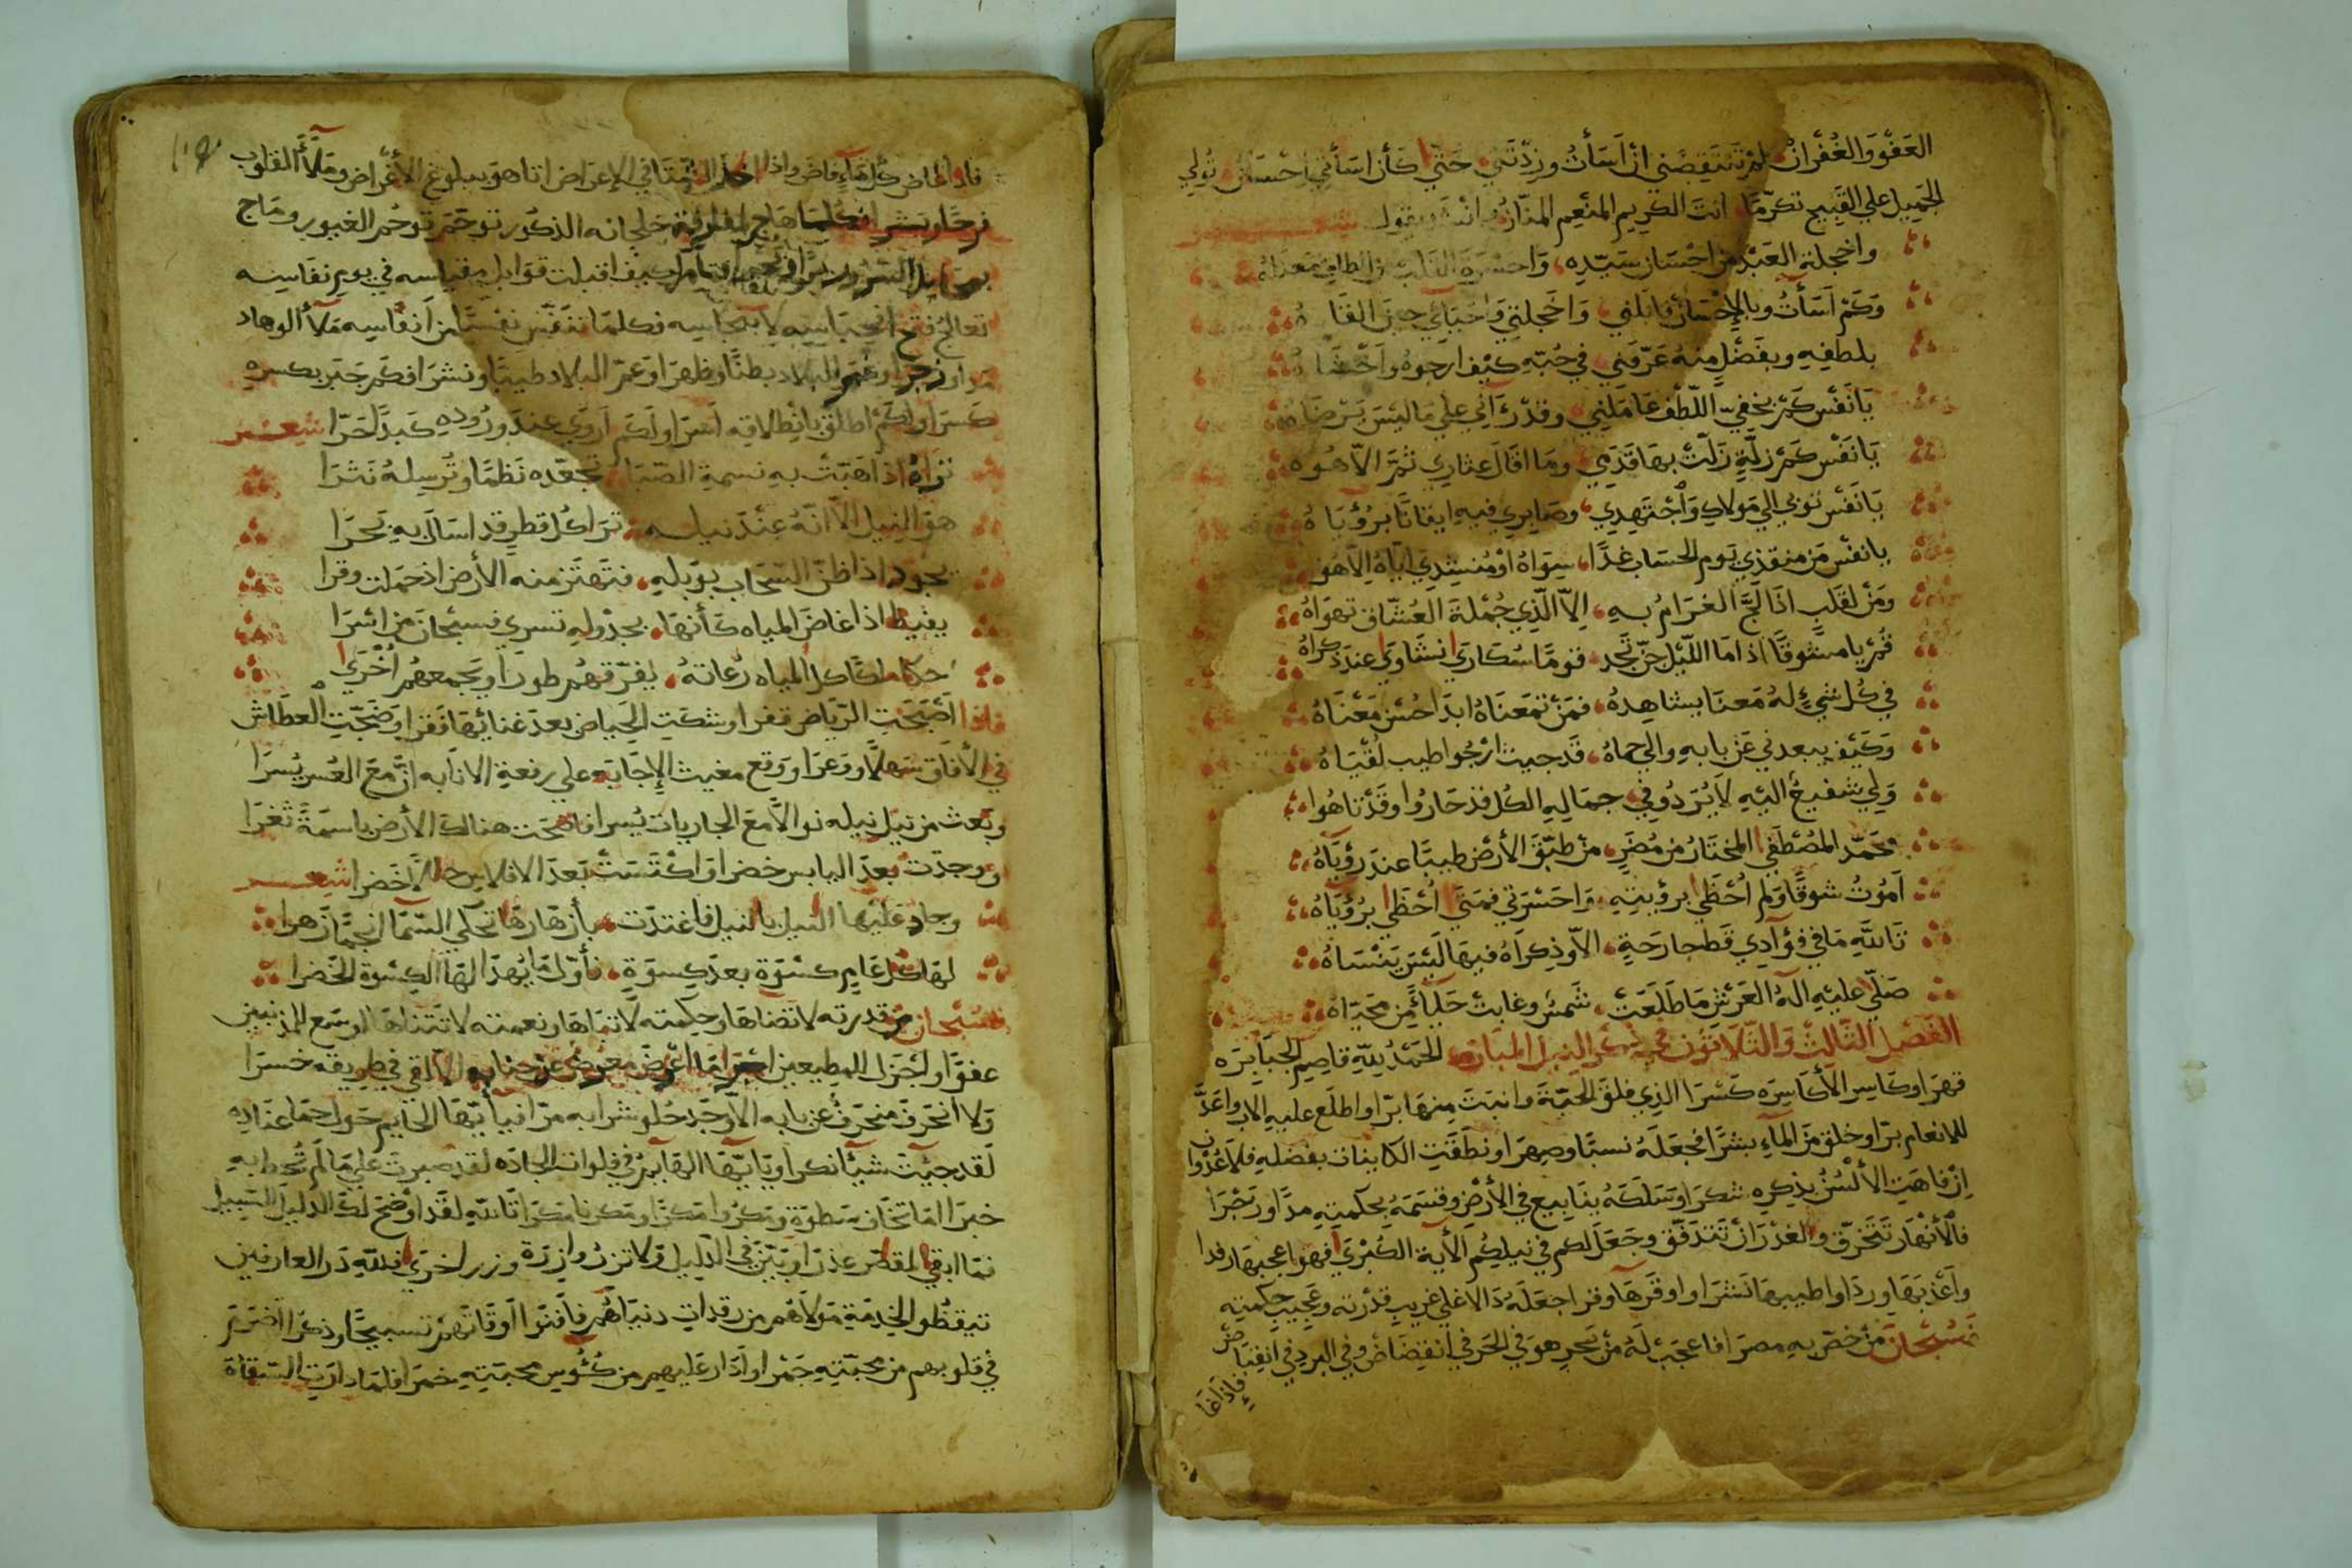 العَفْوَ وَالغُفْرَانْ لم تَنتَقِصْني ان اَسَأتُ وزِدْتَني حَتّي كَأن اسَأتي اِحْسَانْ تُولي
الجَمِيل علي القَبِيح تكرّمًا انت الكريم المنْعِم المنّان وانشد يقول شعر
واخجلة العَبْد من احْسَان سَيّدِه وَاحسْرَة القلب من الطاف معناهُ
وَكَمْ اَسَأتُ وبالإحْسَان قابلني وَاخجلتِي وَاحَيَائِي حِين القَاهُ
بلطفِهِ وبفَضْلٍ مِنْهُ عَرّفَني في حُبّهِ كيْف ارجوهُ وَاَخْشَاهُ
يَا نَفْس كَمْ بخفِيّ اللّطف عَامَلني وقدْ رَآنِي علي مَا ليْسَ يَرْضَاهُ
يَا نَفْس كَمْ زلّةٍ زَلّتْ بهَا قَدَمِي ومَا اقَالَ عِثارِي ثمَّ الاّ هُو
يَا نَفْس توبي الي مَولاكِ وَاْجتَهِدِي وصَابِري فيهِ ايقانًا برُؤيَاهُ
يا نفْس مَن منقذي يَوم الحسَاب غدًا سِوَاهُ اوْ مُنشِدِي ايّاهُ الاّ هُو
وَمَنْ لقَلبٍ اذَا لَجَّ الغرَامُ بهِ اِلاّ الّذِي جُمْلة العُشّاق تهوَاهُ
قُمْ يا مشوقًا اذا مَا اللّيْل جَنّ تَجد قومًا سُكَارَي انشَاوَي عندَ ذكرَاهُ
في كُل شيءٍ لهُ مَعنَا يشاهِدهُ فمَنْ تمَعنَاهُ ابدَا حُسْن مَعْنَاهُ
وَكَيْف يبعدني عَن بابهِ والي حماهُ قَد جيت ارْجُوا طيب لقْيَاهُ
وَلِي شفيعٌ اليْهِ لاَ يُرَدُ وفي جمَالِهِ الكُل قدْ حَارُوا وقَدْ تاهُوا
محَمّد المُصْطَفي المختَارُ مِن مُضَرٍ مَنْ طبّقَ الأرْضَ طيبًا عندَ رؤيَاهُ
اَمُوتُ شوقًا وَلم اُحْظَي برؤيتِهِ وَاحَسْرَتي فمتَي اُحْظَي برُؤيَاهُ
تَاللّهِ مَا في فؤآدِي قَط جارحَةٍ الاّ وذِكرَاهُ فيهَا لَيْسَ يَنْسَاهُ
صَلّي عليْهِ الهُ العَرْشِ مَا طَلَعَتْ شَمسٌ وغابتْ حَيَآءً مِن مُحَيّاهُ
الفَصْل الثّالِثْ وَالثّلاَثُون في ذكر النيل المبَارك الحَمْدُ للهِ قاصِم الجبَابِرَه
قهرَا وكاسِر الأكَاسِرَه كَسْرَا الذِي فلقَ الحَبّة وانبَتَ مِنهَا برّا واطلَع عليهِ الابر واعَدَّ
للانعام برّا وخلق مِنَ المآءِ بشَرًا فجَعَلَهُ نسبًا وصِهرَا ونطقَتِ الكاينات بفضلهِ فلا غدْوا
اِنْ فاهَت الألسُنْ بذِكرِه شكرَا وَسَلَكَهُ ينَابيع في الأرْضِ وقسَمَهُ بحِكمتِهِ مدًّا وزجْرَا
فالأنْهَار تَتَخرّق والغدْرَانْ تتدَفّق وجَعَلَ لكم في نيلِكُم الأية الكُبْرَي فهوَ اعجبهَا رفدا
واَعْذبَهَا وردًا واطيبهَا نَشرَا واوقَرهَا وقرا جعَلَهُ دَالا علي غريب قدْرَته وعَجيب حِكمتِهِ
فسُبْحانَ مَنْ خصّ بهِ مصرَا فاعجَبْ لَهُ مِنْ بحرٍ هوَ في الحَر في انفِضَاض وفي البردِ في انقِبَاض
فإذا غَا
فاذا غاض كل مآءٍ فاضَ واذا اخذ النّمَآ في الإعرَاض اتا هوَ ببلوغ الأغرَاض ومَلأ القلوب
فرحًا وبشرا فكلما هَاج خلجانه الذكُور توَحّمَ توحُم الغيور ومَاج
كيف اقبلت قوَابل مقياسه في يوم نفَاسِه
تعالج فتح انحباسِه لا بنجاسِه فكلمَا تنفّس نفسًا من اَنفاسِه مَلأ الوهاد
مدا وزجرا وغمر البلاد بطنًا وظهرَا وَعمّ البلاد طيبًا ونشرَا فكم جَبَر بكسرهِ
كسرَا وكم اطلق بانْطلاقِه اَسرَا ولَكم اَروَي عندَ ورُودِهِ كَبدًا حَرّا شعر
ترَاهُ اذا هَبّتْ بهِ نسمة الصّبَا تجعّده نَظمًا وتُرسِلهُ نَثرَا
هوَ النيل الاّ انّهُ عنْدَ نيله ترَا كُل قطرٍ قد اسَالَ بهِ بَحرَا
يجود اذا ظنّ السّحَاب بوَبلهِ فتَهتَز منه الأرْض اذ حَملت وقرا
يفيظ اذا غاضَ المياه كَأنهَا بجدْولهِ تسري فسبْحَان من اسْرَا
حكا ملكًا كل المياه رُعَاتهُ يفرّقهُم طورَا ويَجمعهُم اُخْرَي
فاذا اَصْبَحَتِ الرّياض قفرا وشكَتِ الحيَاض بعدَ غنائهَا فَقرا وَضَجّتِ العطَاش
في الأفاق سَهلاً ووَعرَا ووَقع مغيث الإجَابَه علي رفعة الانابه انّ مَعَ العُسر يُسرَا
وبَعث من نَيل نيله نوالاً مَعَ الجاريات يُسرا فاضحَت هنالك الأرض باسِمَةً ثغرَا
ووجدتْ بعدَ اليابس خضرا وَاكْتَسَتْ بَعدَ الافلاس حللاً خَضرا شعر
وجادَ عَليْهَا النيل بالنيل فاغتدَت بأزهَارهَا تحكي السّمَا انجُمًا زهرا
لهَا كل عَامٍ كسْوَة بعدَ كِسوَةٍ فأوّل مَا يُهدَا لهَا الكِسْوة الخَضرا
فسُبْحان من قدرته لا تضَاهَا وحِكمته لا تبَاهَا ونعمته لا تَتنَاهَا اوسَع المذنبين
عفوًا وَاجْزل للمطيعين اجرَا مَا اَعْرضَ معرضٌ عَنْ جنَابهِ الاّ لقي في طريقه خسرَا
وَلا انحَرفَ منحَرفٌ عن بابه الاّ وَجَد حُلو شرابهِ مرّا فيَا أيّهَا الحَايم حَول حمَا عنَادِهِ
لَقد جيْتَ شيْأ نكرا ويَا أيّهَا الهَايم في فلوات الجادّه لقد صبرتَ علي مَا لم تُحط بهِ
خبرَا امَا تخَاف سَطوَة ومَكرُوا مَكرًا ومَكرنا مَكرَا تاللّهِ لقَد اوْضَح لكَ الدّليل السّبيل
فمَا ابقي لمقصّر عذرَا وبَيّن في الدّليل وَلا تزرُ وازرَة وزر اخرَي فللّهِ دَر العارفين
تيقظُو الخِدمَةِ مَولاَهُم من رقدات دنيَاهُم فاَفنَوْا اَوقَاتهُم تسبيحًا وذكرَا اضرَمَ
في قلوبهم من محبّتِهِ جَمْرا وَاَدَارَ عَليهم من كُئُوس محبّتِهِ خمرَا فلمَا دارَت السّقَاة